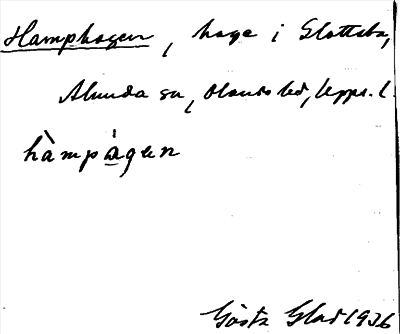 Hamphagen, hage i Slottsta,
Alunda sn, Olands hd, Upps. l.
hàmpágen
Gösta Glad 1936